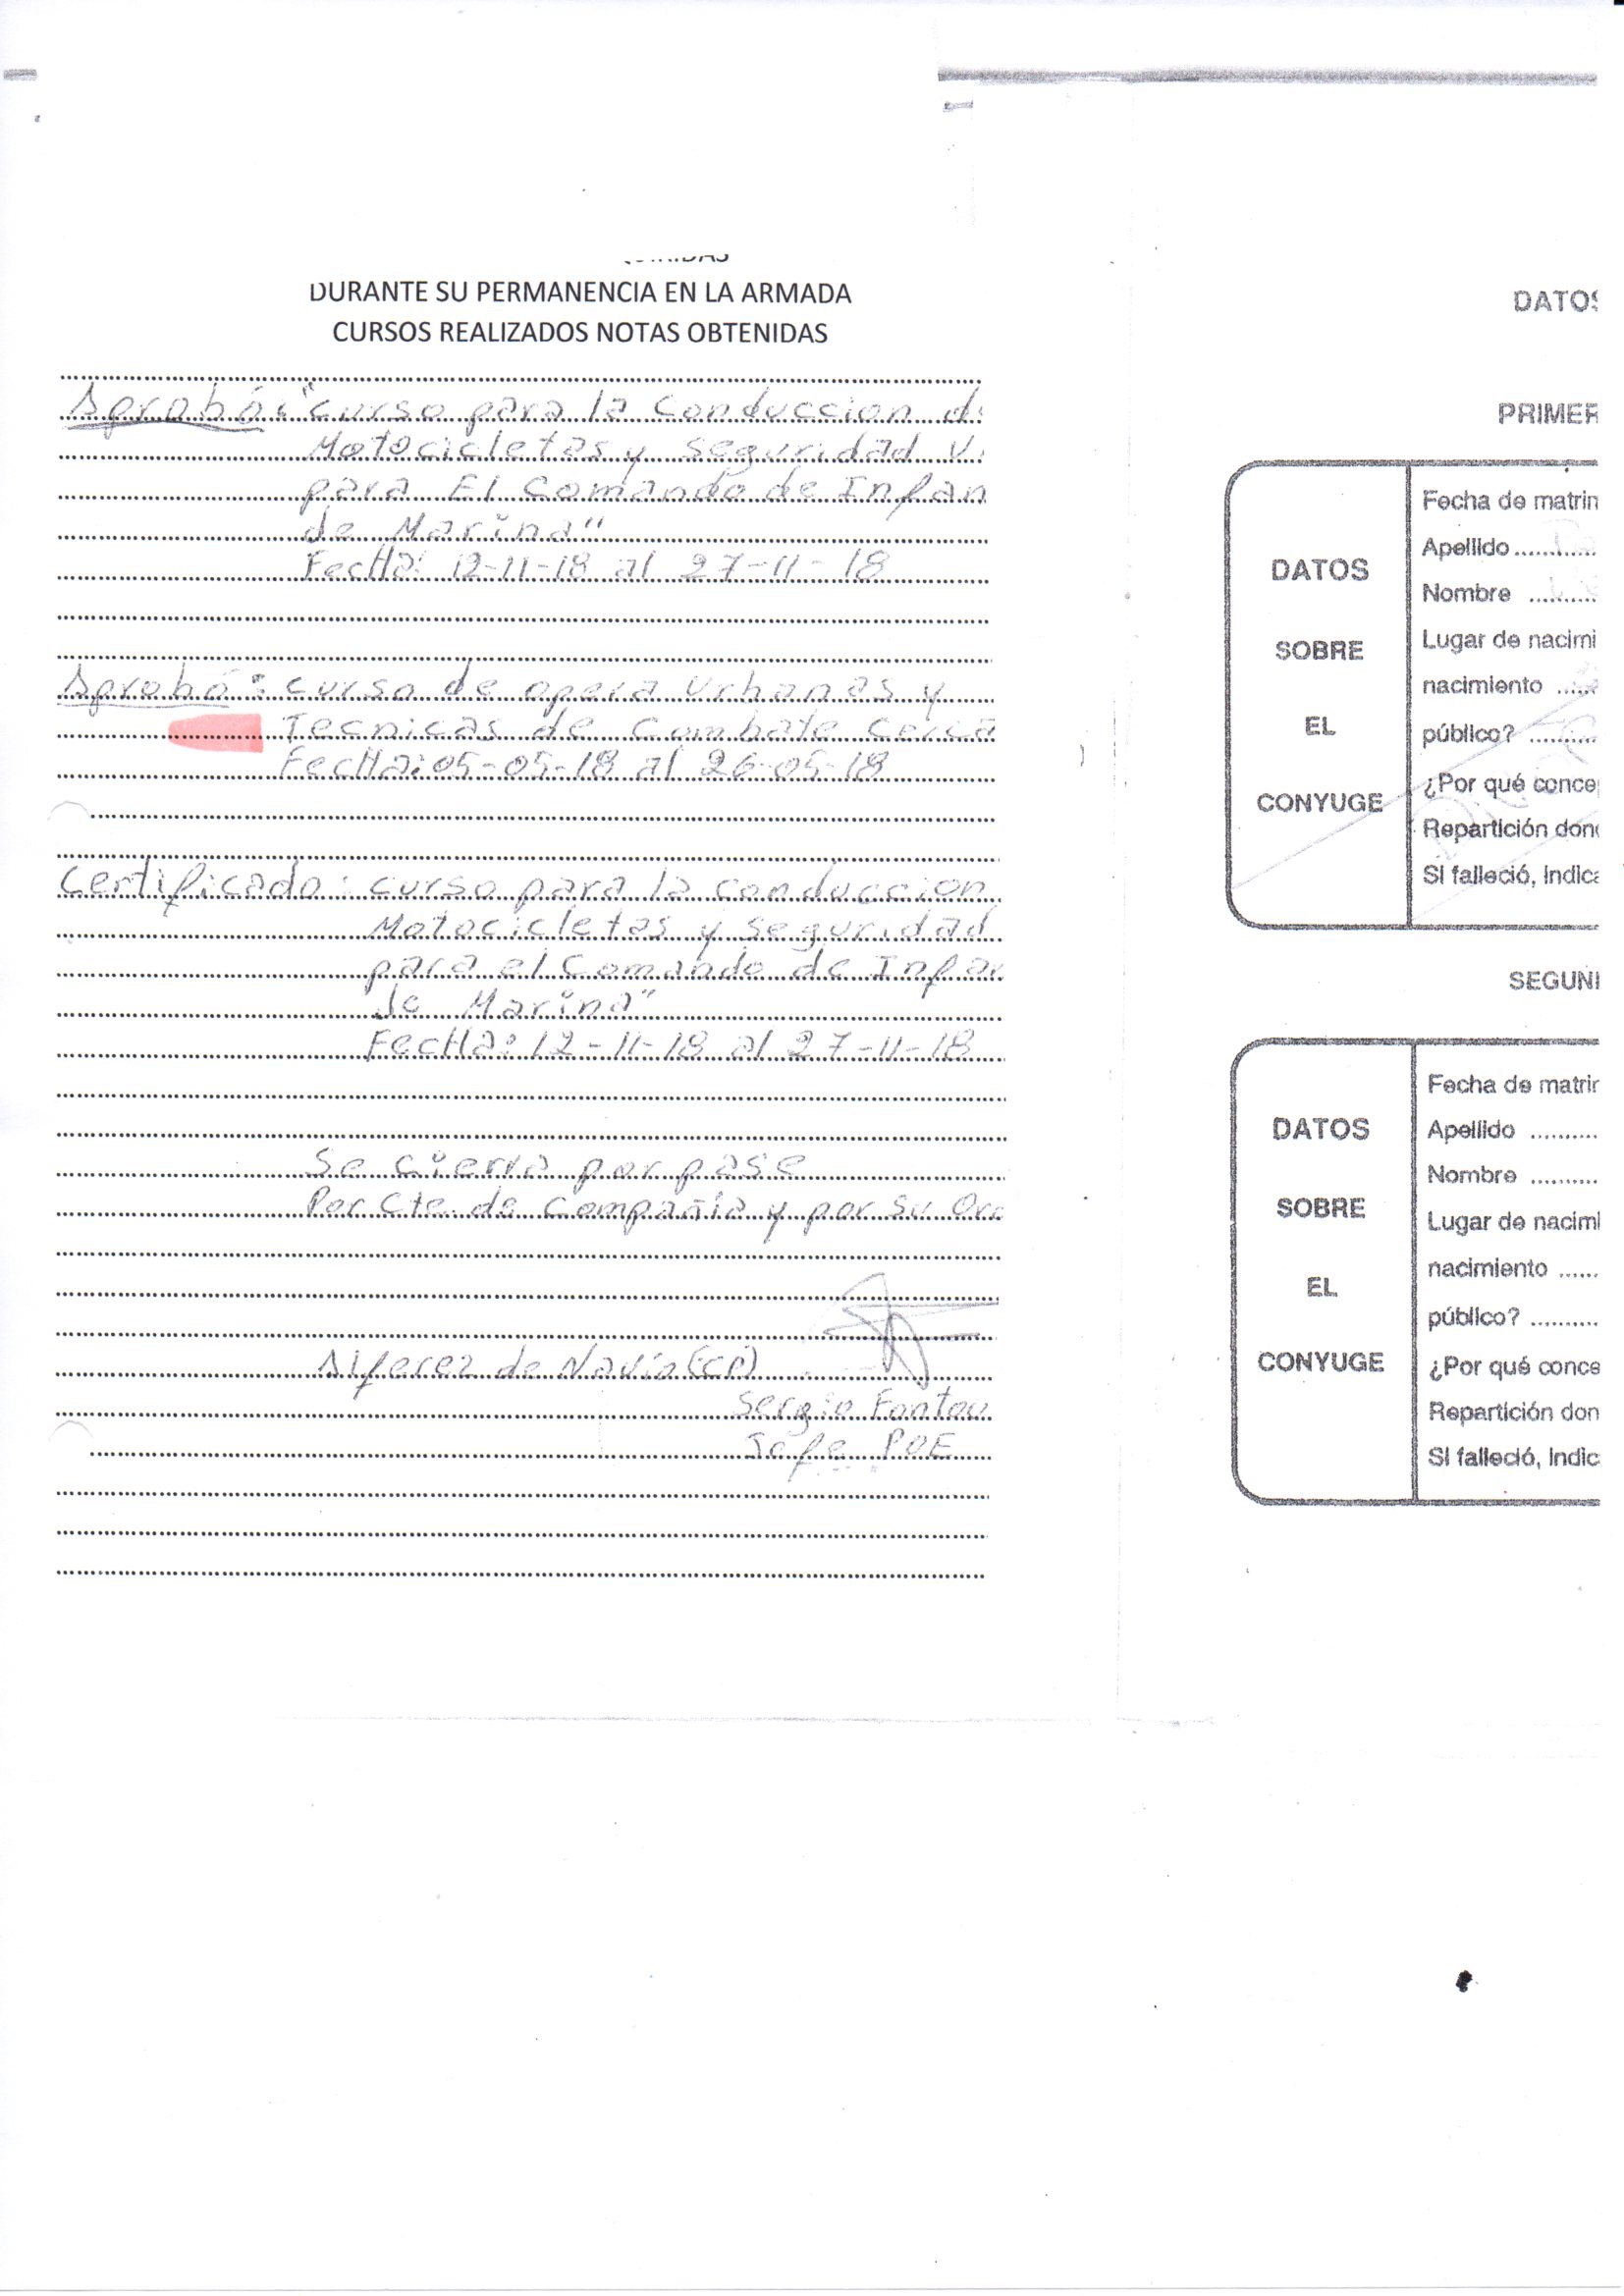 DURANTE SU PERMANENCIA EN LA ARMADA
CURSOS REALIZADOS NOTAS OBTENIDAS
Aprobó: "curso para la Conduccion de
Motocicletas y seguridad V
para El Comando de Infan
de Marina"
FecHa: 12-11-18 al 27-11-18
Aprobó: curso de opera Urbanas y
Tecnicas de Combate cerca
FecHa: 05-05-18 al 26-05-18
Certificado: curso para la conduccion
Motocicletas y seguridad
para el Comando de Infan
de Marina"
FecHa: 12-11-18 al 27-11-18
Se cierra por pase
Por Cte. de Compañia y por su Ord
Alferez de Navío (CP)
Sergio Fontou
Jefe POE
DATOS
PRIMER
DATOS
SOBRE
EL
CONYUGE
Fecha de matrim
Apellido
Nombre
Lugar de nacimi
nacimiento
público?
¿Por qué conce
Repartición dond
Si falleció, indica
SEGUN
DATOS
SOBRE
EL
CONYUGE
Fecha de matrim
Apellido
Nombre
Lugar de nacimi
nacimiento
público?
¿Por qué conce
Repartición don
Si falleció, indic